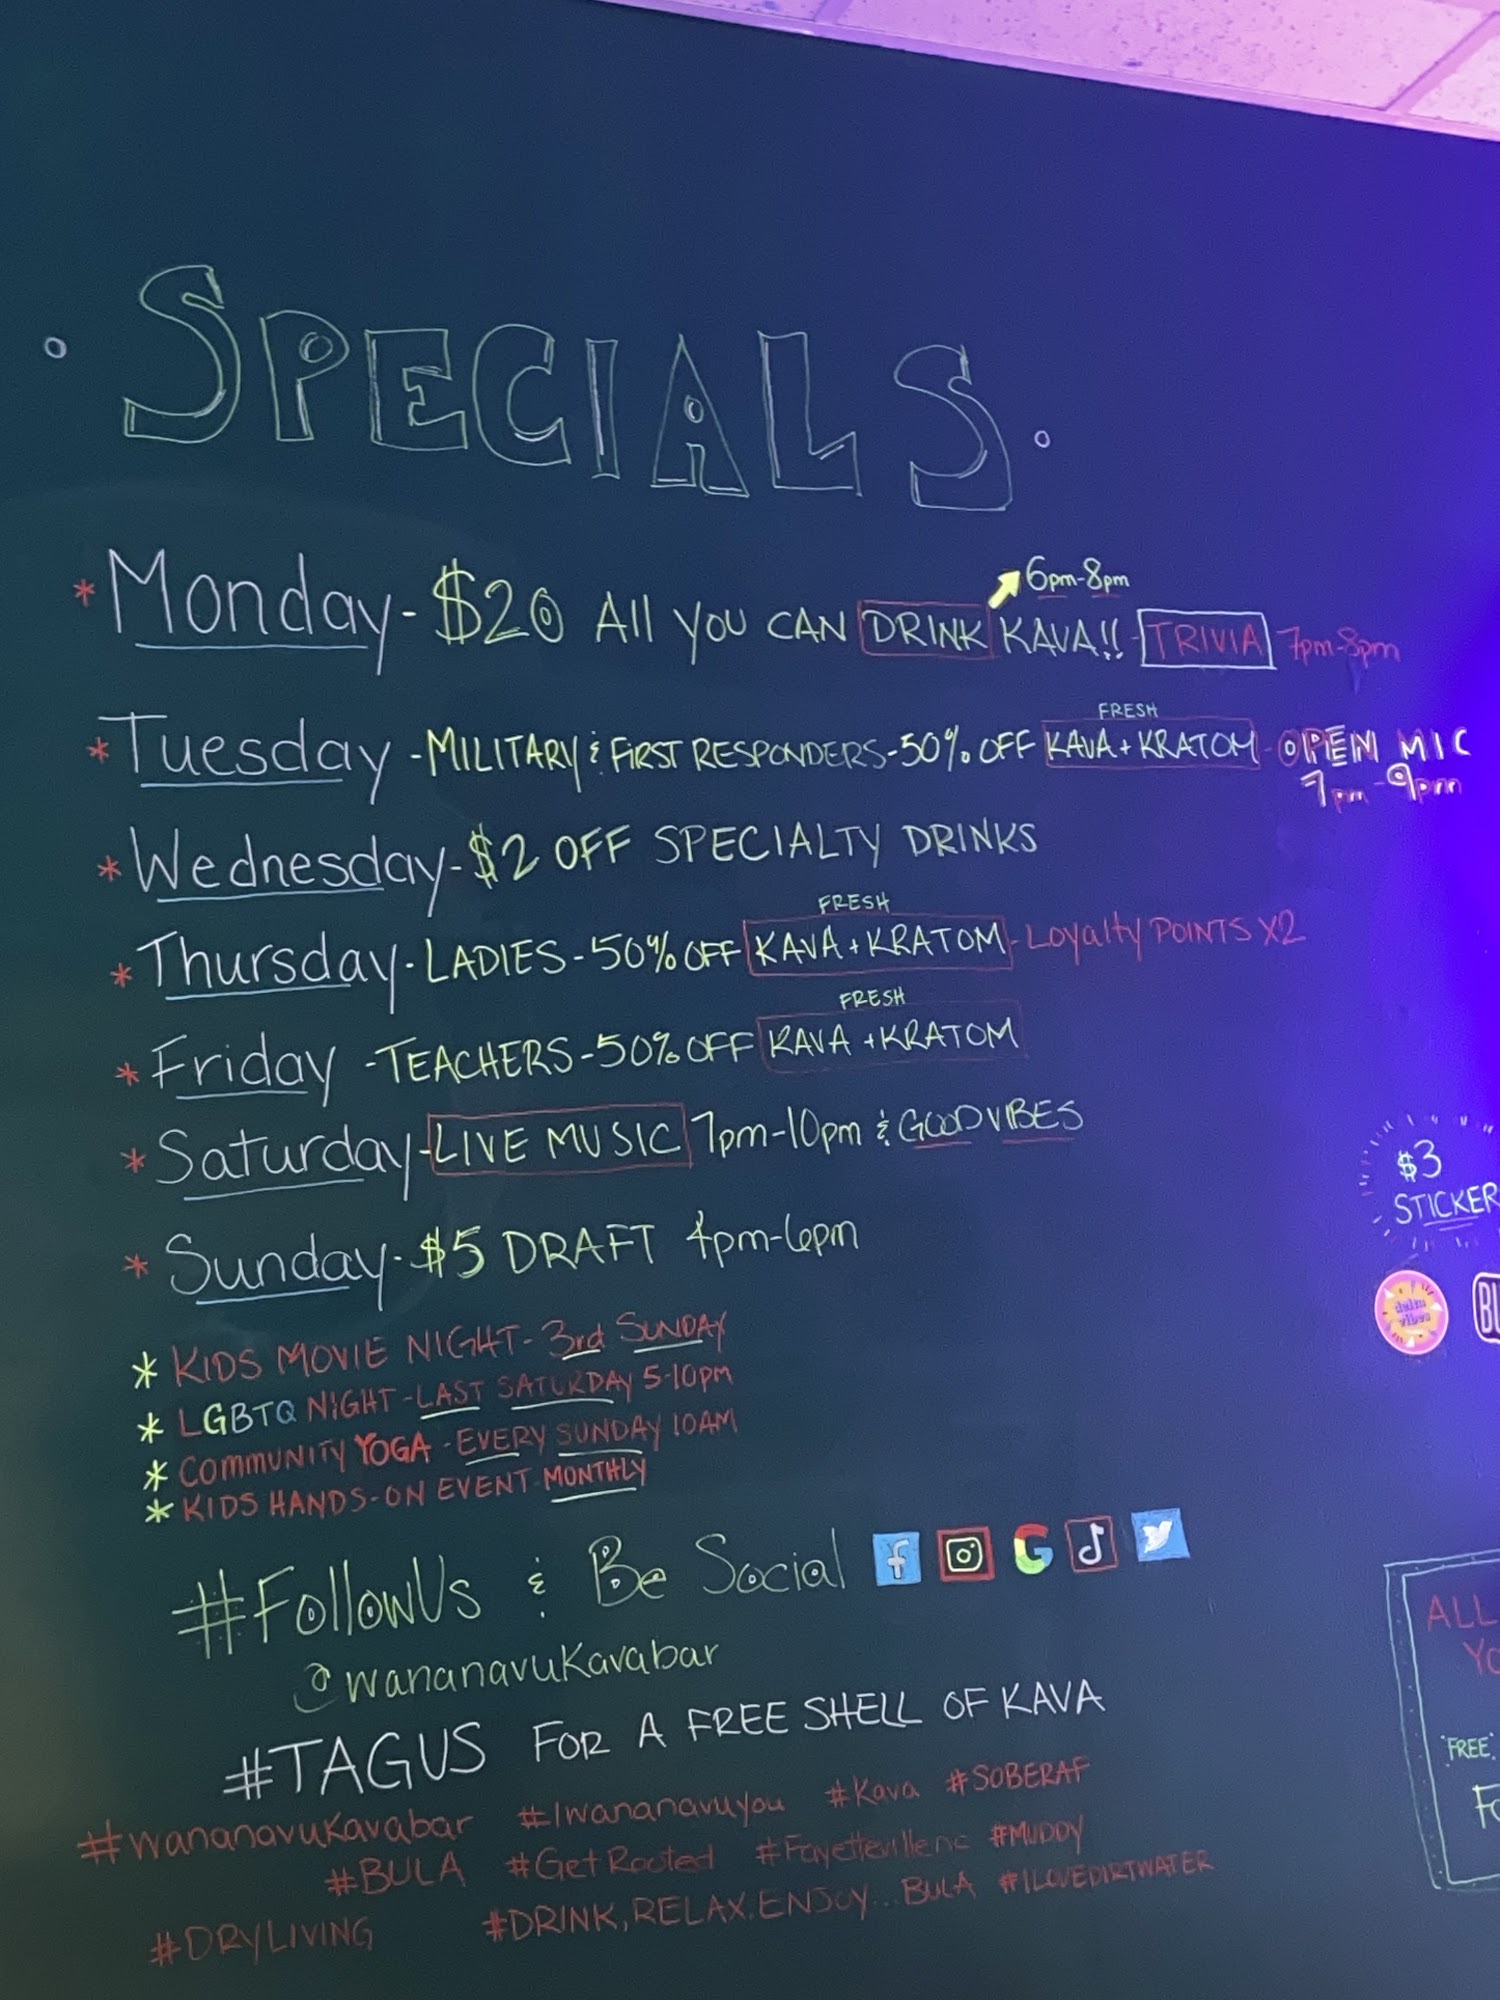 SPECIALS
6pm-8pm
* Monday - $20 All YOU CAN DRINK KAVA!! - TRIVIA 7pm-8pm
FRESH
* Tuesday - MILITARY & FIRST RESPONDERS - 50% OFF KAVA + KRATOM - OPEN MIC
7pm - 9pm
* Wednesday - $2 OFF SPECIALTY DRINKS
FRESH
* Thursday - LADIES - 50% OFF KAVA + KRATOM - Loyalty POINTS X2
FRESH
* Friday - TEACHERS - 50% OFF KAVA + KRATOM
* Saturday - LIVE MUSIC 7pm-10pm & GOOD VIBES
* Sunday - $5 DRAFT 4pm-6pm
* KIDS MOVIE NIGHT - 3rd SUNDAY
* LGBTQ NIGHT - LAST SATURDAY 5-10pm
* COMMUNITY YOGA - EVERY SUNDAY 10AM
* KIDS HANDS-ON EVENT - MONTHLY
#FollowUs & Be Social
@wananavuKavabar
#TAGUS FOR A FREE SHELL OF KAVA
#wananavuKavabar #Iwananavuyou #Kava #SOBERAF
#BULA #GetRooted #Fayettevillenc #MUDDY
#DRYLIVING #DRINK, RELAX. ENJOY... BULA #ILOVEDIRTWATER
$3
STICKER
ALL
FREE